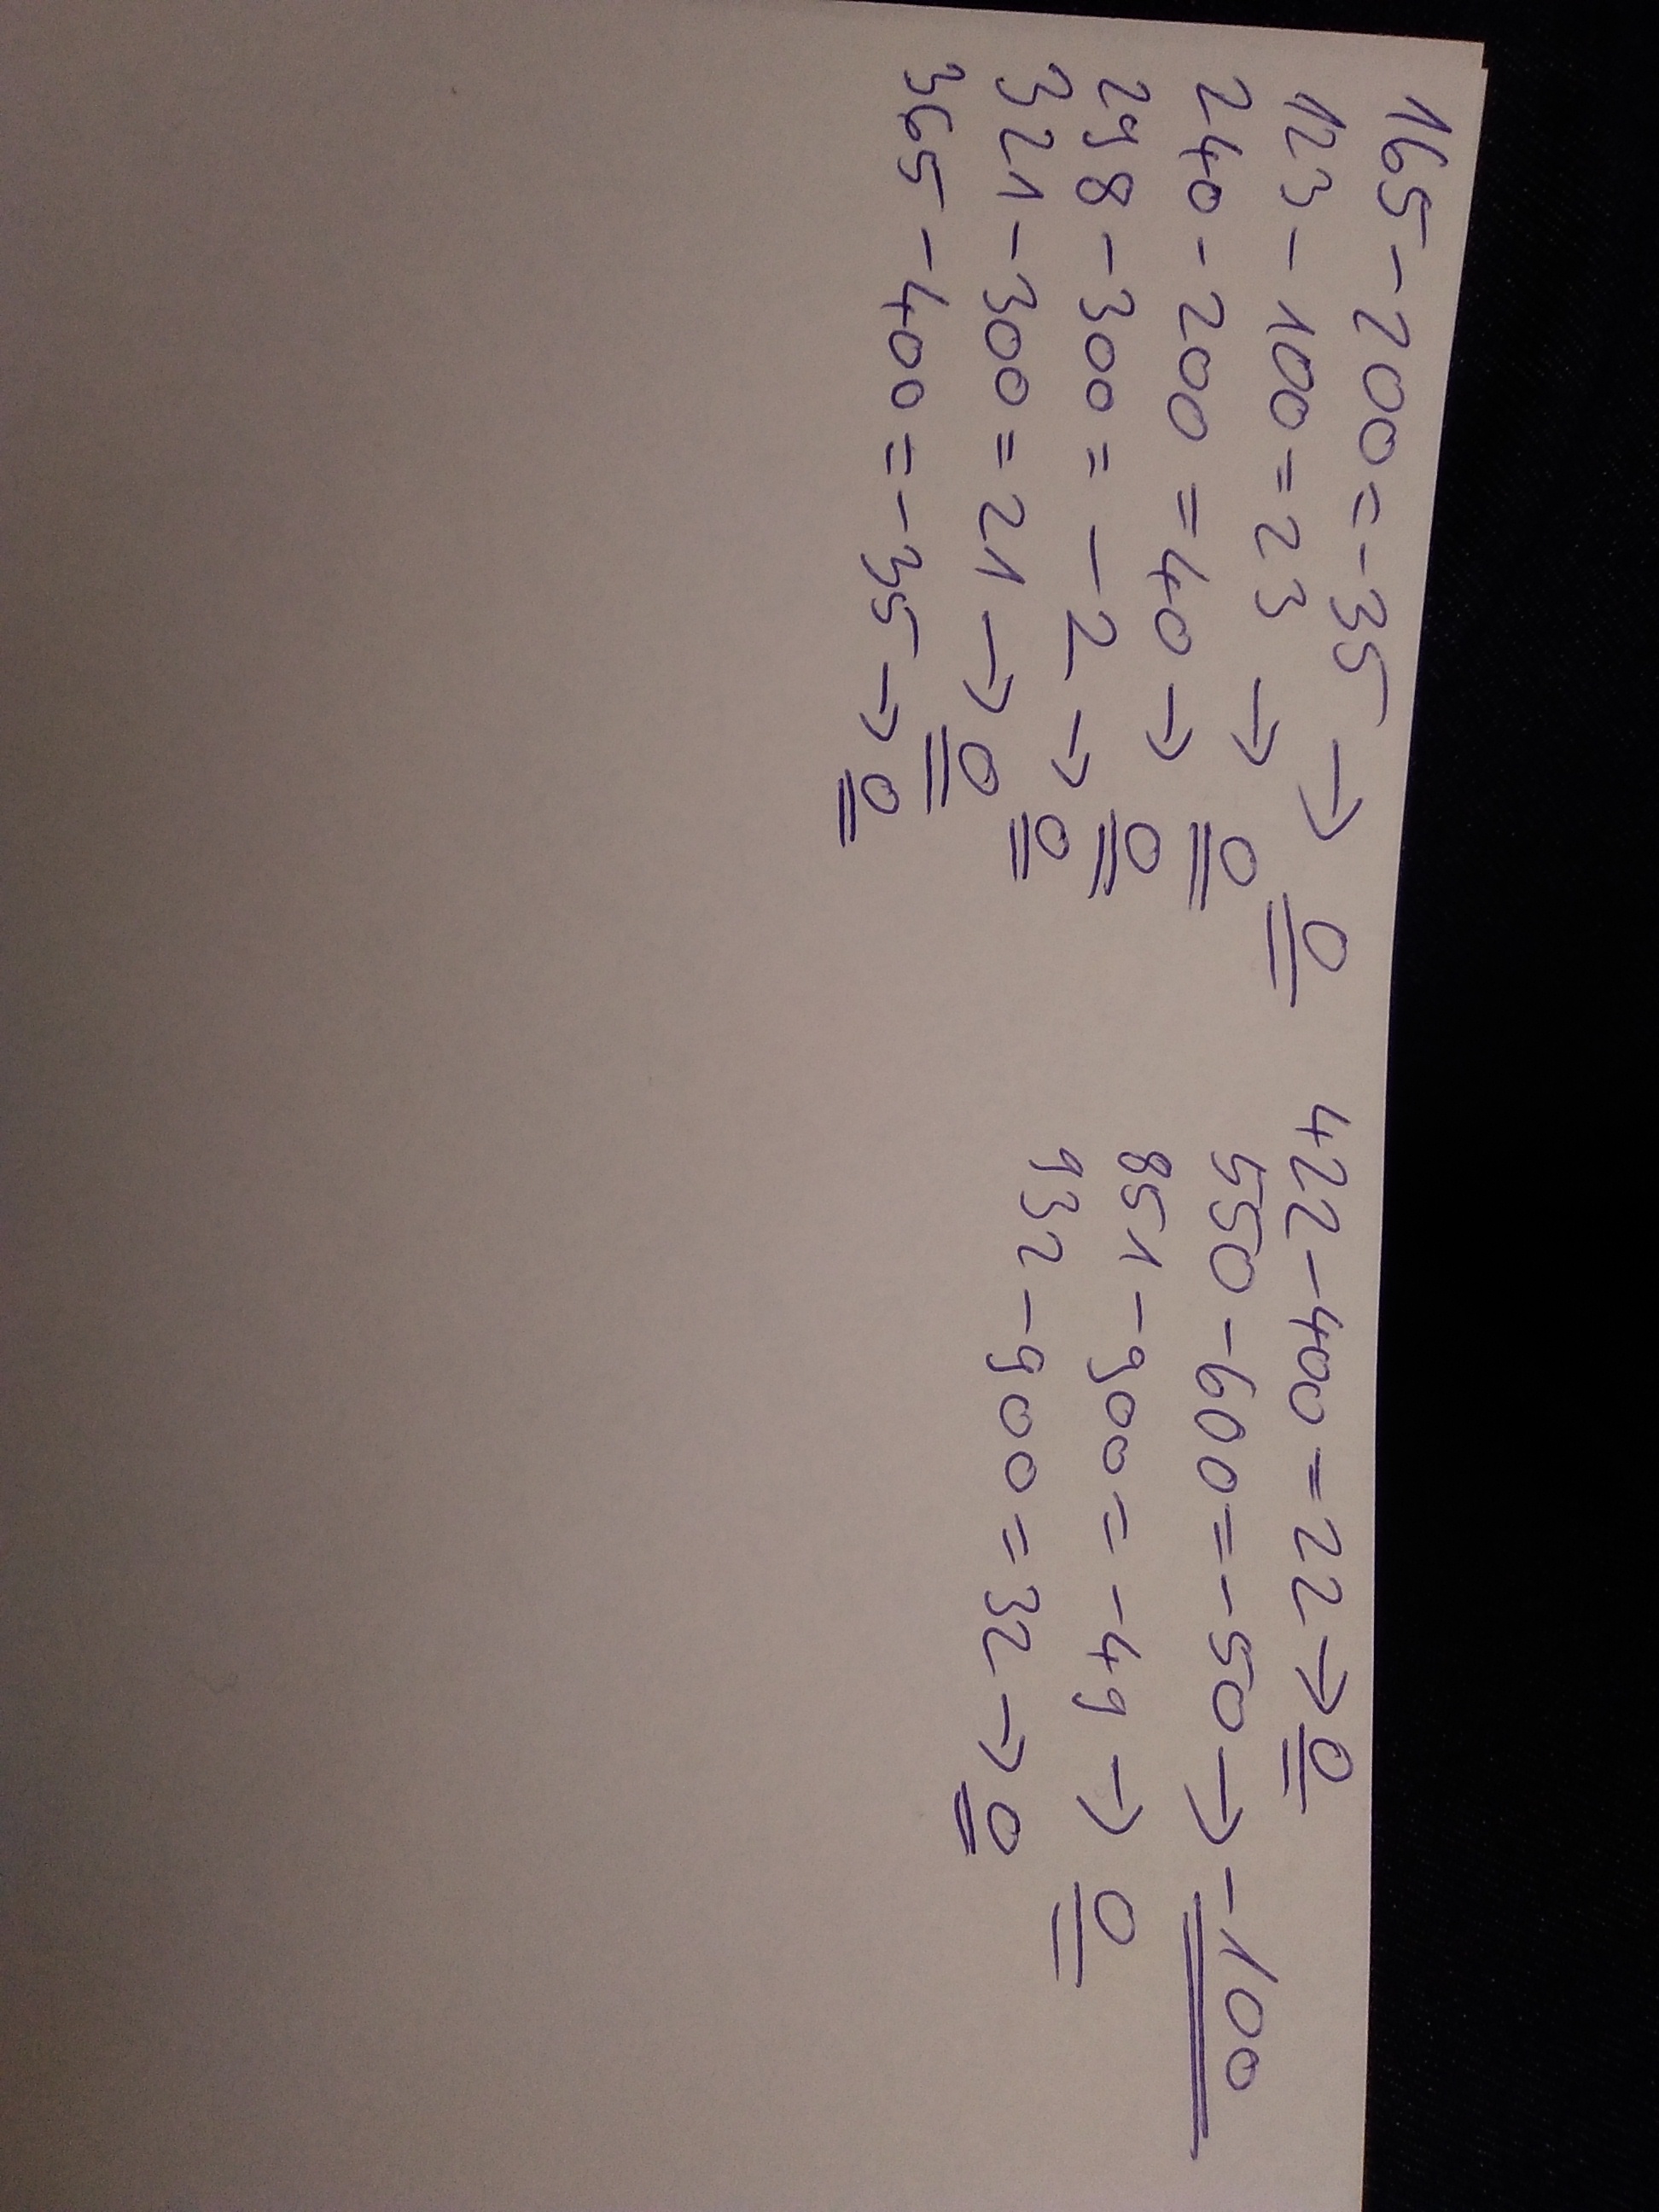 165-200=-35 → 0
123-100=23 → 0
240-200=40 → 0
298-300=-2 → 0
321-300=21 → 0
365-400=-35 → 0
422-400=22 → 0
550-600=-50 → -100
851-900=-49 → 0
932-900=32 → 0